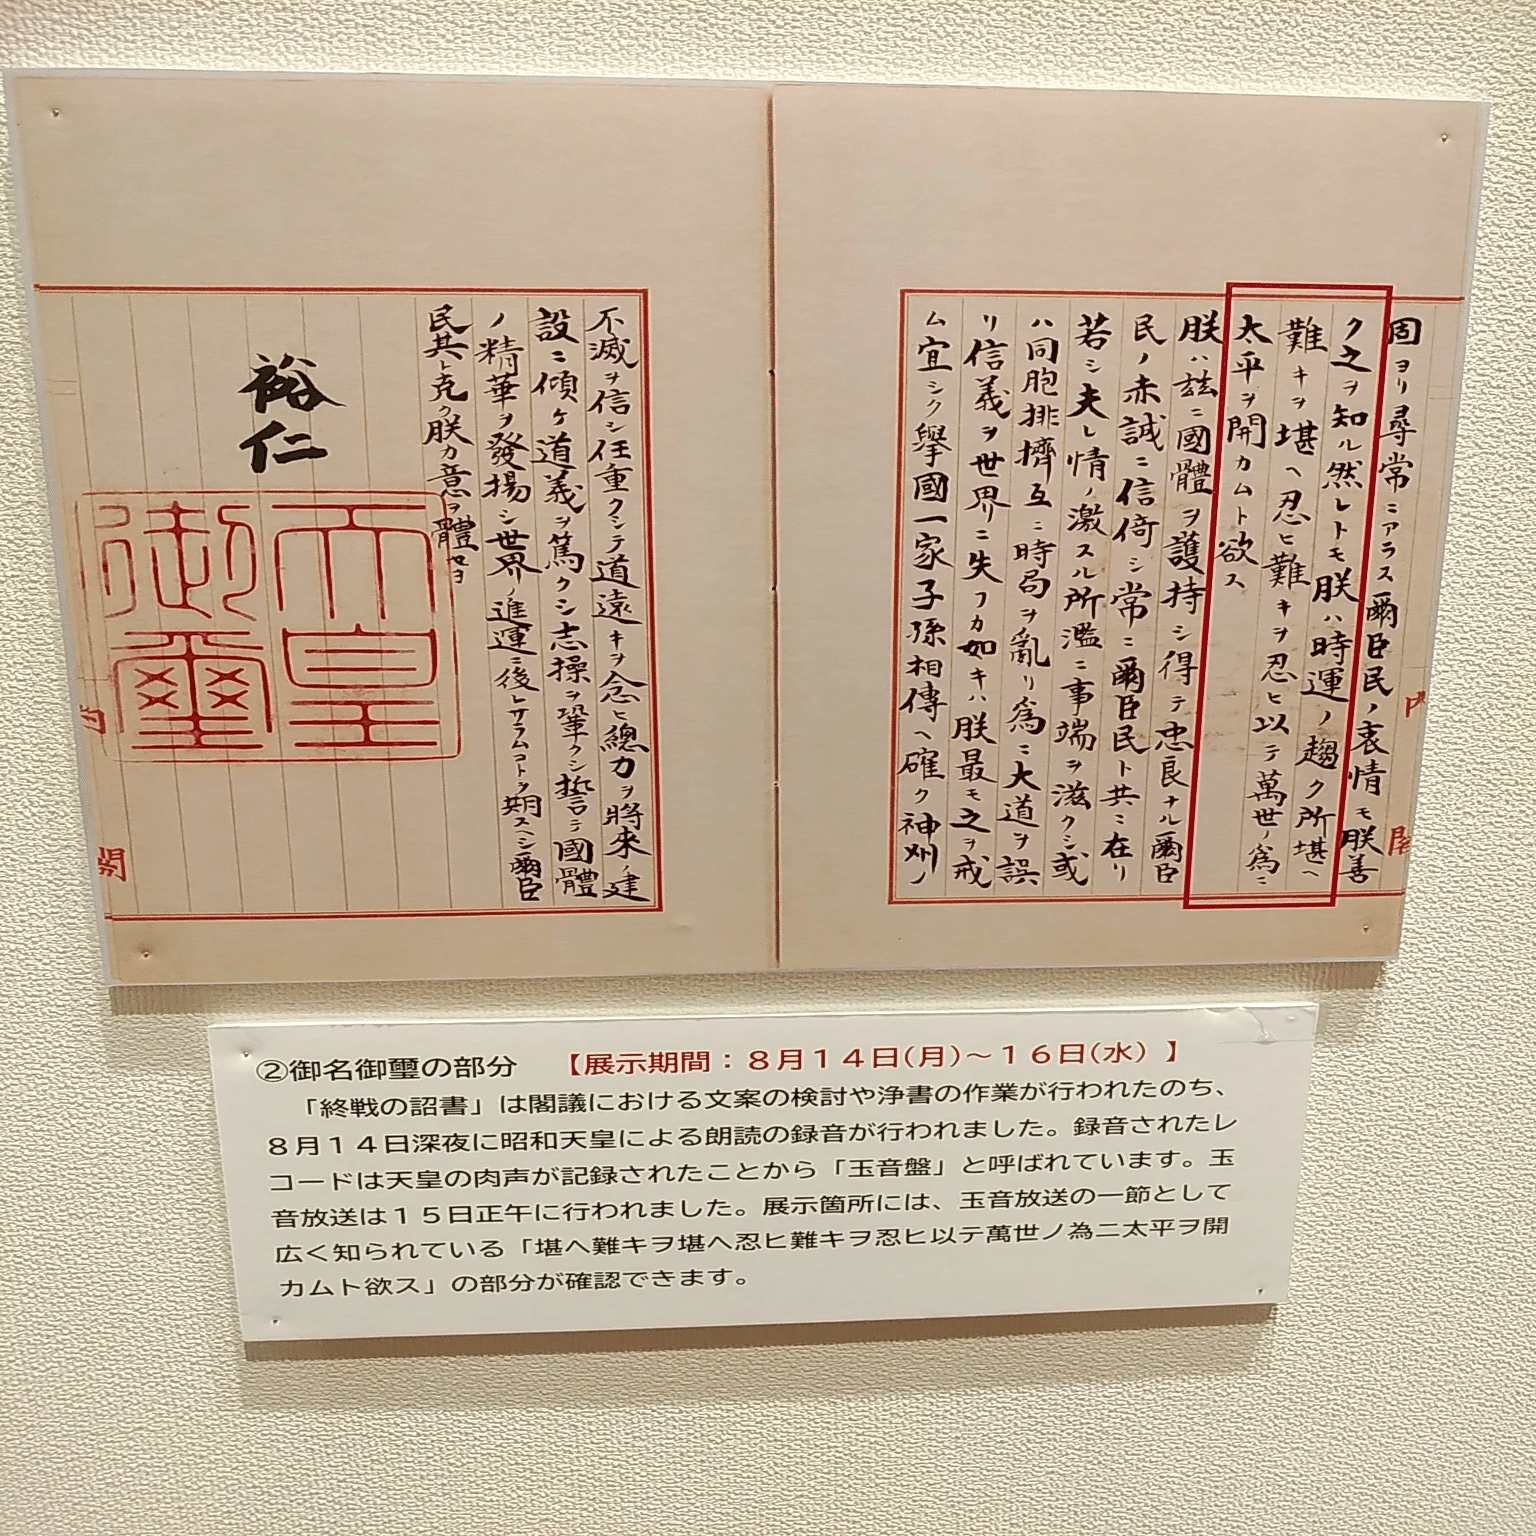 固ヨリ尋常ニアラス爾臣民ノ衷情モ朕善
ク之ヲ知ル然レトモ朕ハ時運ノ趨ク所堪ヘ
難キヲ堪ヘ忍ヒ難キヲ忍ヒ以テ萬世ノ為ニ
太平ヲ開カムト欲ス
朕ハ玆ニ國體ヲ護持シ得テ忠良ナル爾臣
民ノ赤誠ニ信倚シ常ニ爾臣民ト共ニ在リ
若シ夫レ情ノ激スル所濫ニ事端ヲ滋クシ或
ハ同胞排擠互ニ時局ヲ亂リ為ニ大道ヲ誤
リ信義ヲ世界ニ失フカ如キハ朕最モ之ヲ戒
ム宜シク擧國一家子孫相傳ヘ確ク神州ノ
不滅ヲ信シ任重クシテ道遠キヲ念ヒ總力ヲ將來ノ建
設ニ傾ケ道義ヲ篤クシ志操ヲ鞏クシ誓テ國體
ノ精華ヲ發揚シ世界ノ進運ニ後レサラムコトヲ期スヘシ爾臣
民其レ克ク朕カ意ヲ體セヨ
裕仁
天皇
御璽
内閣
②御名御璽の部分 【展示期間：８月１４日(月)～１６日(水）】
「終戦の詔書」は閣議における文案の検討や浄書の作業が行われたのち、
８月１４日深夜に昭和天皇による朗読の録音が行われました。録音されたレ
コードは天皇の肉声が記録されたことから「玉音盤」と呼ばれています。玉
音放送は１５日正午に行われました。展示箇所には、玉音放送の一節として
広く知られている「堪ヘ難キヲ堪ヘ忍ヒ難キヲ忍ヒ以テ萬世ノ為ニ太平ヲ開
カムト欲ス」の部分が確認できます。